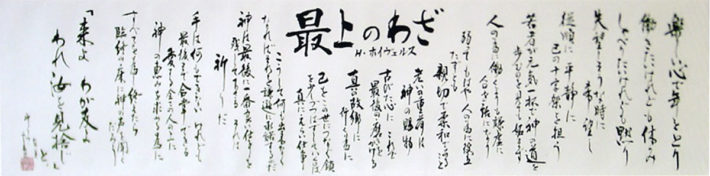 最上のわざ
H・ホイヴェルス
楽しい心で年をとり
働きたいけれども休み
しゃべりたいけれども黙り
失望しそうな時に
希望し
従順に 平静に
己の十字架を担う
若者が元気一杯で神の道を
歩むのを見ても妬まず
人の為働くより謙虚に
人の世話になり
弱ってもはや人の為に役立
たずとも
親切で柔和であること
老いの重荷は
神の賜物
古びた心に これで
最後の磨きをかける
真の故郷に
行く為に
己をこの世につなぐ鎖
を少しづつはずしてゆくのは
真にえらい仕事
こうして何も出来なく
なればそれを謙遜に承諾するのだ
神は最後に一番よい仕事を
残して下さる それは
祈りだ
手は何もできない けれども
最後まで合掌できる
愛する全ての人の上に
神の恵みを求める為に
すべてをなし終えたら
臨終の床に神の声を聞く
だろう
「来よ わが友よ
われ汝を見捨じ」
と